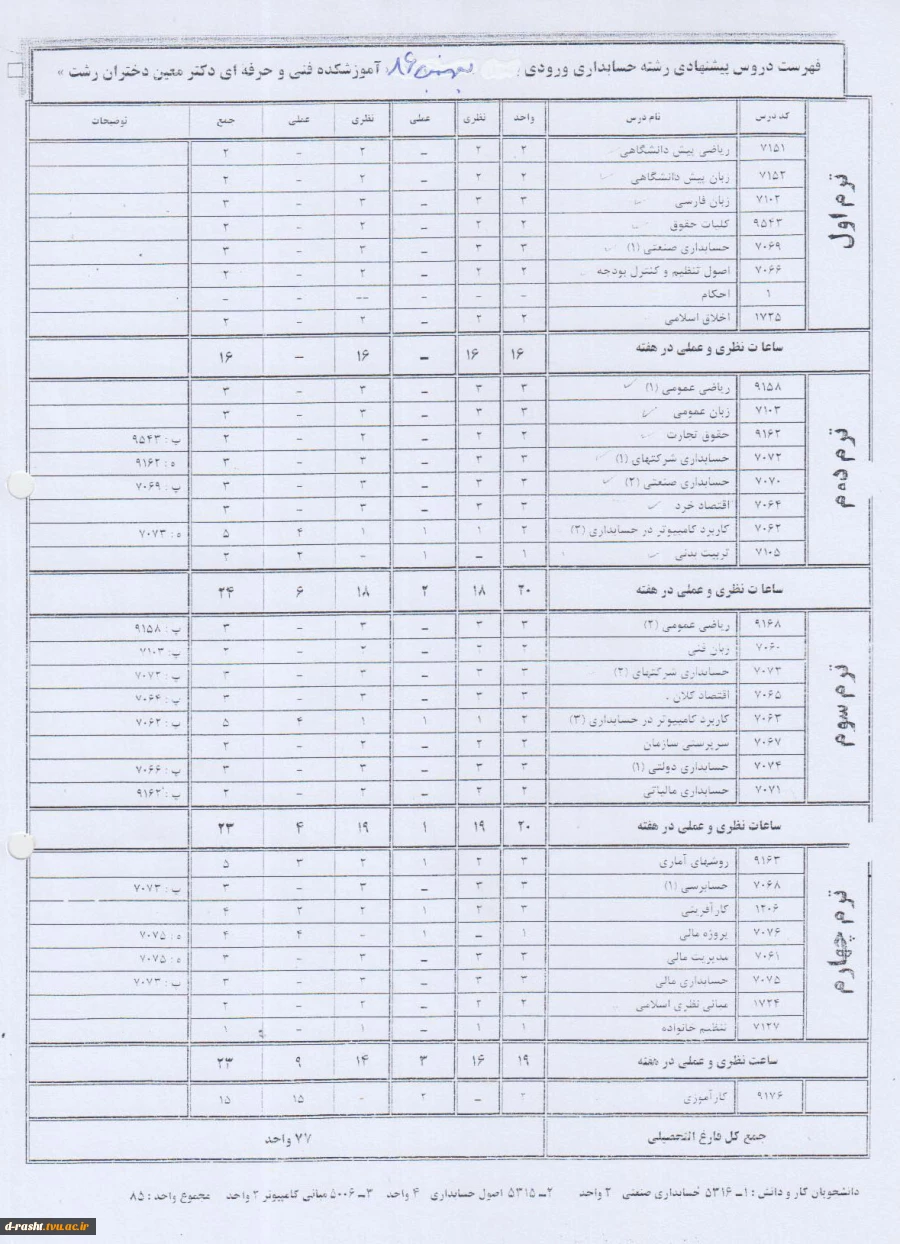 فهرست دروس پیشنهادی رشته حسابداری ورودی بهمن ۸۶ آموزشکده فنی و حرفه ای دکتر معین دختران رشت »
کد درس نام درس واحد نظری عملی نظری عملی جمع توضیحات
ترم اول
۷۱۵۱ ریاضی پیش دانشگاهی ۲ ۲ – ۲ – ۲
۷۱۵۲ زبان پیش دانشگاهی ۲ ۲ – ۲ – ۲
۷۱۰۲ زبان فارسی ۳ ۳ – ۳ – ۳
۹۵۴۳ کلیات حقوق ۲ ۲ – ۲ – ۲
۷۰۶۹ حسابداری صنعتی (۱) ۳ ۳ – ۳ – ۳
۷۰۶۶ اصول تنظیم و کنترل بودجه ۲ ۲ – ۲ – ۲
۱ احکام - - – -- – –
۱۷۲۵ اخلاق اسلامی ۲ ۲ – ۲ – ۲
ساعات نظری و عملی در هفته ۱۶ ۱۶ – ۱۶ – ۱۶
ترم دوم
۹۱۵۸ ریاضی عمومی (۱) ۳ ۳ – ۳ – ۳
۷۱۰۳ زبان عمومی ۳ ۳ – ۳ – ۳
۹۱۶۲ حقوق تجارت ۲ ۲ – ۲ – ۲ پ : ۹۵۴۳
۷۰۷۲ حسابداری شرکتهای (۱) ۳ ۳ – ۳ – ۳ ه : ۹۱۶۲
۷۰۷۰ حسابداری صنعتی (۲) ۳ ۳ – ۳ – ۳ پ : ۷۰۶۹
۷۰۶۴ اقتصاد خرد ۳ ۳ – ۳ – ۳
۷۰۶۲ کاربرد کامپیوتر در حسابداری (۲) ۲ ۱ ۱ ۱ ۴ ۵ ه : ۷۰۷۳
۷۱۰۵ تربیت بدنی ۱ – ۱ - ۲ ۲
ساعات نظری و عملی در هفته ۲۰ ۱۸ ۲ ۱۸ ۶ ۲۴
ترم سوم
۹۱۶۸ ریاضی عمومی (۲) ۳ ۳ – ۳ – ۳ پ : ۹۱۵۸
۷۰۶۰ زبان فنی ۲ ۲ – ۲ – ۲ پ : ۷۱۰۳
۷۰۷۳ حسابداری شرکتهای (۲) ۳ ۳ – ۳ – ۳ پ : ۷۰۷۲
۷۰۶۵ اقتصاد کلان ۳ ۳ – ۳ – ۳ پ : ۷۰۶۴
۷۰۶۳ کاربرد کامپیوتر در حسابداری (۳) ۲ ۱ ۱ ۱ ۴ ۵ پ : ۷۰۶۲
۷۰۶۷ سرپرستی سازمان ۲ ۲ – ۲ – ۲
۷۰۷۴ حسابداری دولتی (۱) ۳ ۳ – ۳ – ۳ پ : ۷۰۶۶
۷۰۷۱ حسابداری مالیاتی ۲ ۲ – ۲ – ۲ پ : ۹۱۶۲
ساعات نظری و عملی در هفته ۲۰ ۱۹ ۱ ۱۹ ۴ ۲۳
ترم چهارم
۹۱۶۳ روشهای آماری ۳ ۲ ۱ ۲ ۳ ۵
۷۰۶۸ حسابرسی (۱) ۳ ۳ – ۳ – ۳ پ : ۷۰۷۳
۱۲۰۶ کارآفرینی ۳ ۲ ۱ ۲ ۲ ۴
۷۰۷۶ پروژه مالی ۱ – ۱ - ۴ ۴ ه : ۷۰۷۵
۷۰۶۱ مدیریت مالی ۳ ۳ – ۳ – ۳ ه : ۷۰۷۵
۷۰۷۵ حسابداری مالی ۳ ۳ – ۳ – ۳ پ : ۷۰۷۳
۱۷۲۴ مبانی نظری اسلامی ۲ ۲ – ۲ – ۲
۷۱۲۷ تنظیم خانواده ۱ ۱ – ۱ – ۱
ساعت نظری و عملی در هفته ۱۹ ۱۶ ۳ ۱۴ ۹ ۲۳
۹۱۷۶ کارآموزی ۲ – ۲ - ۱۵ ۱۵
جمع کل فارغ التحصیلی ۷۷ واحد
دانشجویان کار و دانش : ۱ـ ۵۳۱۶ حسابداری صنعتی ۲ واحد ۲ـ ۵۳۱۵ اصول حسابداری ۴ واحد ۳ـ ۵۰۰۶ مبانی کامپیوتر ۲ واحد مجموع واحد : ۸۵
d-rasht.tvu.ac.ir